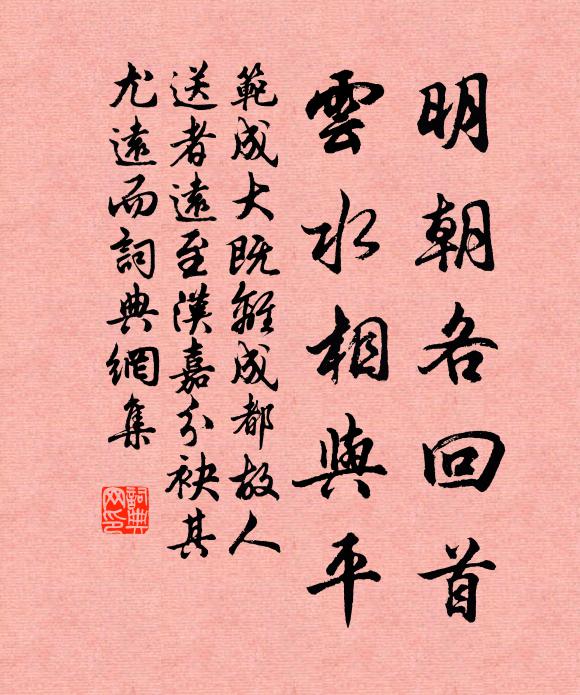 明朝各回首
雲水相與平
範成大既離成都故人
送者遠至漢嘉分袂其
尤遠而詞典網集
詞典网印